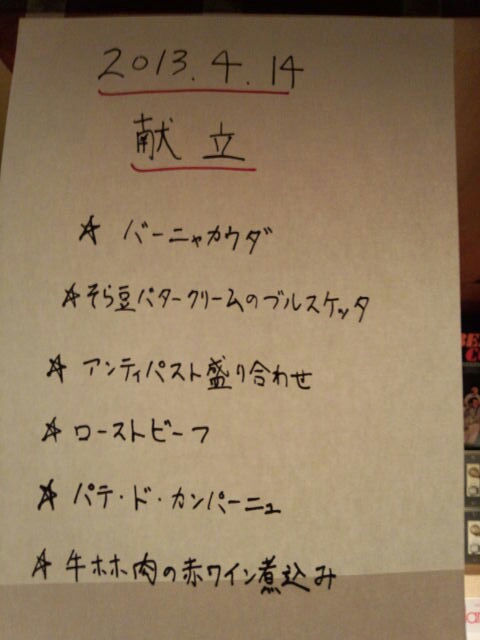 2013.4.14
献立
☆ バーニャカウダ
☆そら豆バタークリームのブルスケッタ
☆ アンティパスト盛り合わせ
☆ ローストビーフ
☆ パテ・ド・カンパーニュ
☆ 牛ホホ肉の赤ワイン煮込み